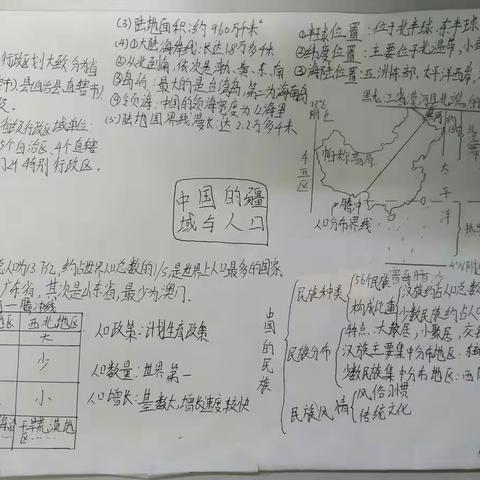 (3) 陆地面积：约960万千米²
(4) ①大陆海岸线：长达1.8万多千米
②从北到南，依次是渤、黄、东、南
③岛屿：最大的是台湾岛，第二为海南岛
④领海：中国的领海宽度为12海里
(5) 陆地国界线：长达2.2万多千米
行政区划大致分为省
县、自治县、直辖市
省级行政区域单位：
5个自治区、4个直辖
特别行政区。
①半球位置：位于北半球、东半球
②纬度位置：主要位于北温带，小部
③海陆位置：亚洲东部、太平洋西岸
黑龙江省漠河县北端
黑河
帕米尔高原
腾冲
人口分布界线
东
五
区
太
平
洋
中国的疆
域与人口
总人口为13.7亿，约占世界人口总数的1/5，是世界上人口最多的国家
广东省，其次是山东省，最少为澳门。
西北地区
大
少
小
干旱荒漠地
区
人口政策：计划生育政策
人口数量：世界第一
人口增长：基数大，增长速度较快
中国的民族
民族种类
56个民族
构成比重
汉族约占人口总数
少数民族约占人口
民族分布
特点：大散居，小聚居，交
汉族主要集中分布地区：东
少数民族集中分布地区：西
民族风情
风俗习惯
传统文化